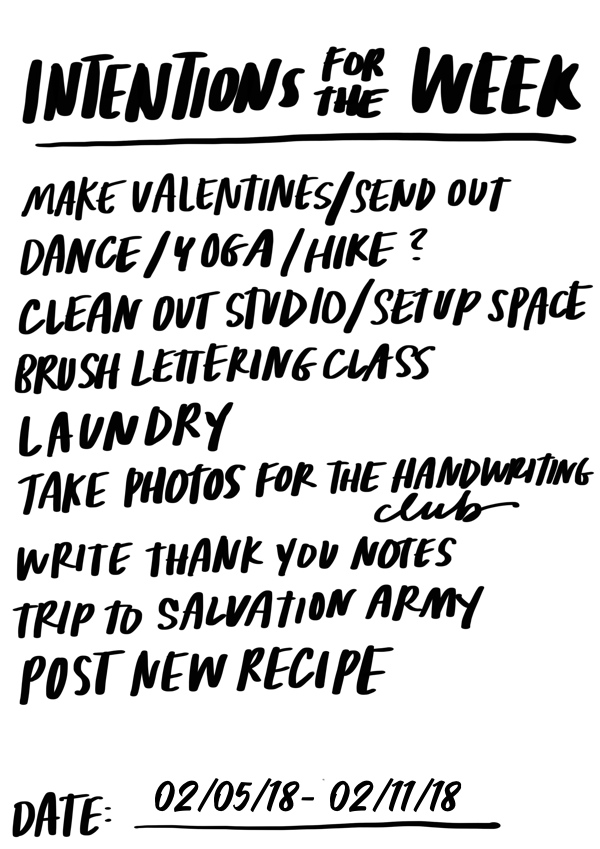 INTENTIONS FOR THE WEEK
MAKE VALENTINES/SEND OUT
DANCE/YOGA/HIKE?
CLEAN OUT STUDIO/SETUP SPACE
BRUSH LETTERING CLASS
LAUNDRY
TAKE PHOTOS FOR THE HANDWRITING
club
WRITE THANK YOU NOTES
TRIP TO SALVATION ARMY
POST NEW RECIPE
DATE: 02/05/18- 02/11/18